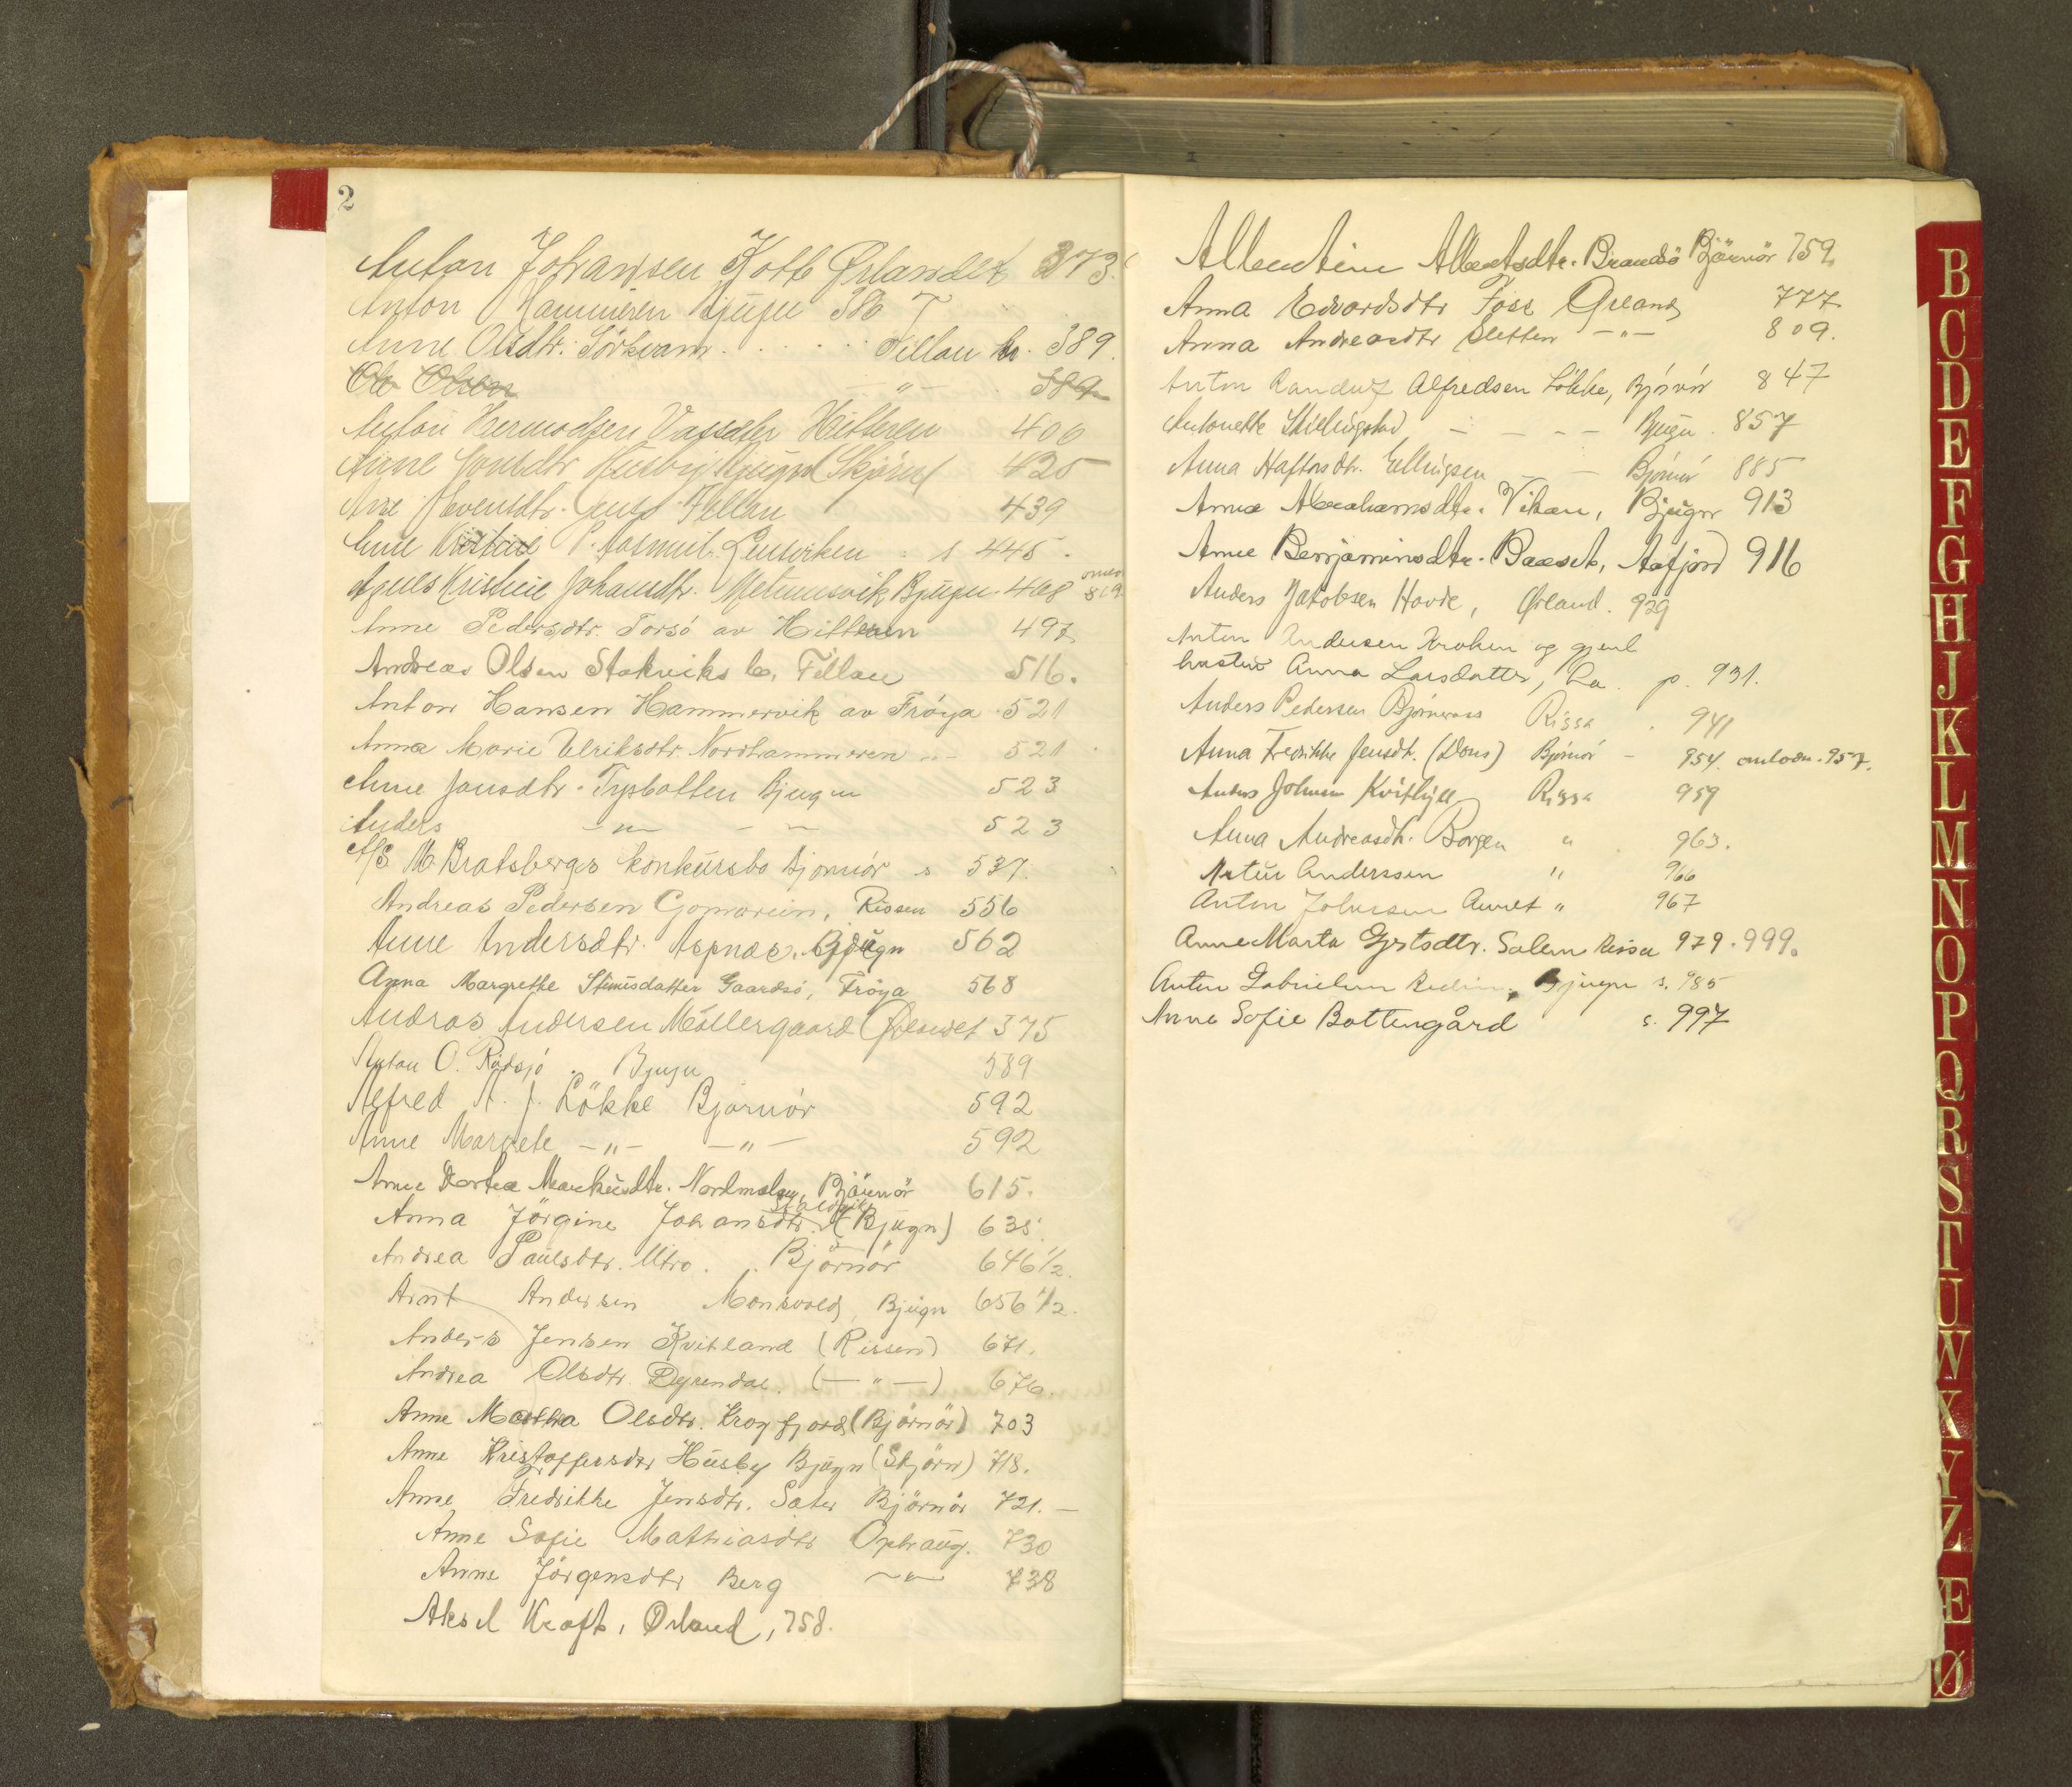 2
Anton Johansen Kotb Ørlandet 373.
Anton Hammeren Bjugn 386
Anne Olsdtr. Sörkvam . . . . . Fillan hr. 389.
Ole Olsen — " — 389
Anton Hermodsen Hitteren 406
Anne Jonsdtr Husby Bjugn (Skjörn) 425
Ane Evensdtr. Fillan 439
Ane Kristine P. Lensviken s 445.
Agnes Kristine Johansdtr. Metunsvik Bjugn 468 819
Anne Pedersdtr. Torsö av Hitteren 497
Andreas Olsen Stakvik b, Fillan 516.
Anton Hansen Hammervik av Fröya 521
Anna Marie Ulriksdtr. Nordhammeren — " — 521
Anne Jonsdtr. Tysbotten Bjugn 523
Anders — " — — " — 523
A/S M. Bratsbergs konkursbo Bjørnør s 537.
Andreas Pedersen , Rissen 556
Anne Andersdtr. Aspnæs. Bjugn 562
Anna Margrethe Stinusdatter Gaardsö, Fröya 568
Andras Andersen Möllergaard Ørlandet 375
Anton O. Rödsjö . Bjugn 589
Alfred A. J. Lökke Bjørnør 592
Anne Margrete — " — — " — 592
Anne Dortea Markusdtr. Nordmelan, Björnör 615.
Anna Jörgine Johansdtr. (Bjugn) 635.
Andrea Paulsdtr. Utro. Björnör 646 1/2.
Arnt Andersen Monsvold, Bjugn 656 1/2.
Anders Jensen Kvitland (Rissen) 671.
Andrea Olsdtr. Dyrendal. (— " —) 676.
Anne Martha Olsdtr. Krogfjord (Björnör) 703
Anne Kristoffersdtr Husby Bjugn (Skjörn) 718.
Anne Fredrikke Jensdtr. Sæter Björnör 721. —
Anne Sofie Mathiasdtr Ophaug. 730
Anne Jörgensdtr Berg — " — 738
Aksel Kraft, Ørland, 758.
Albertine Albertsdtr. Brandsö Björnör 759.
Anna Edvardsdtr Foss Ørland 777
Anna Andreasdtr Sletten — " — 809.
Anton Randulf Alfredsen Lökke, Björnör 847
Antonette Skillingstad — — — — Bjugn . 857
Anna Haftorsdtr. Ellingsen — — Björnör 885
Anna Abrahamsdtr. Vikan, Bjugn 913
Anne Benjaminsdtr. Baaset, Aafjord 916
Anders Jakobsen Hovde, Ørland. 929
Anton Andersen Kroken og gjenl
hustru Anna Larsdatter, p. 931.
Anders Pedersen Rissa . 941
Anna Fredrikke Jensdtr. (Dons) Björnör — 954. 957.
Anders Johnsen Kvithyll Rissa 959
Anna Andreasdtr. Borgen " . 963.
Artur Anderssen " 966
Anton Johnsen Aunet " 967
Anne Marta Gjertsdtr. Solem Rissa 979. 999.
Anton Gabrielsen , Bjugn s. 985
Anne Sofie Bottengård s. 997
B
C
D
E
F
G
H
J
K
L
M
N
O
P
Q
R
S
T
U
W
X
Y
Z
Æ
Ø